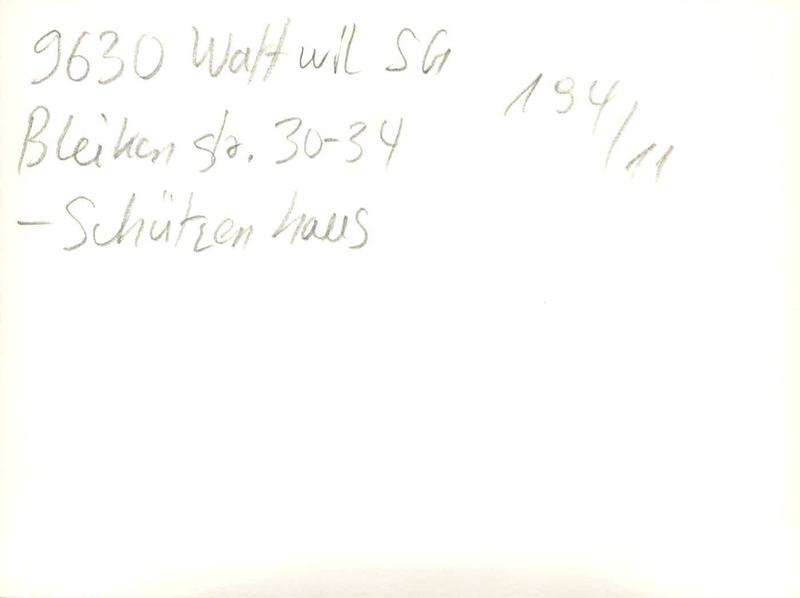 9630 Wattwil SG
194/11
Bleikenstr. 30-34
- Schützenhaus